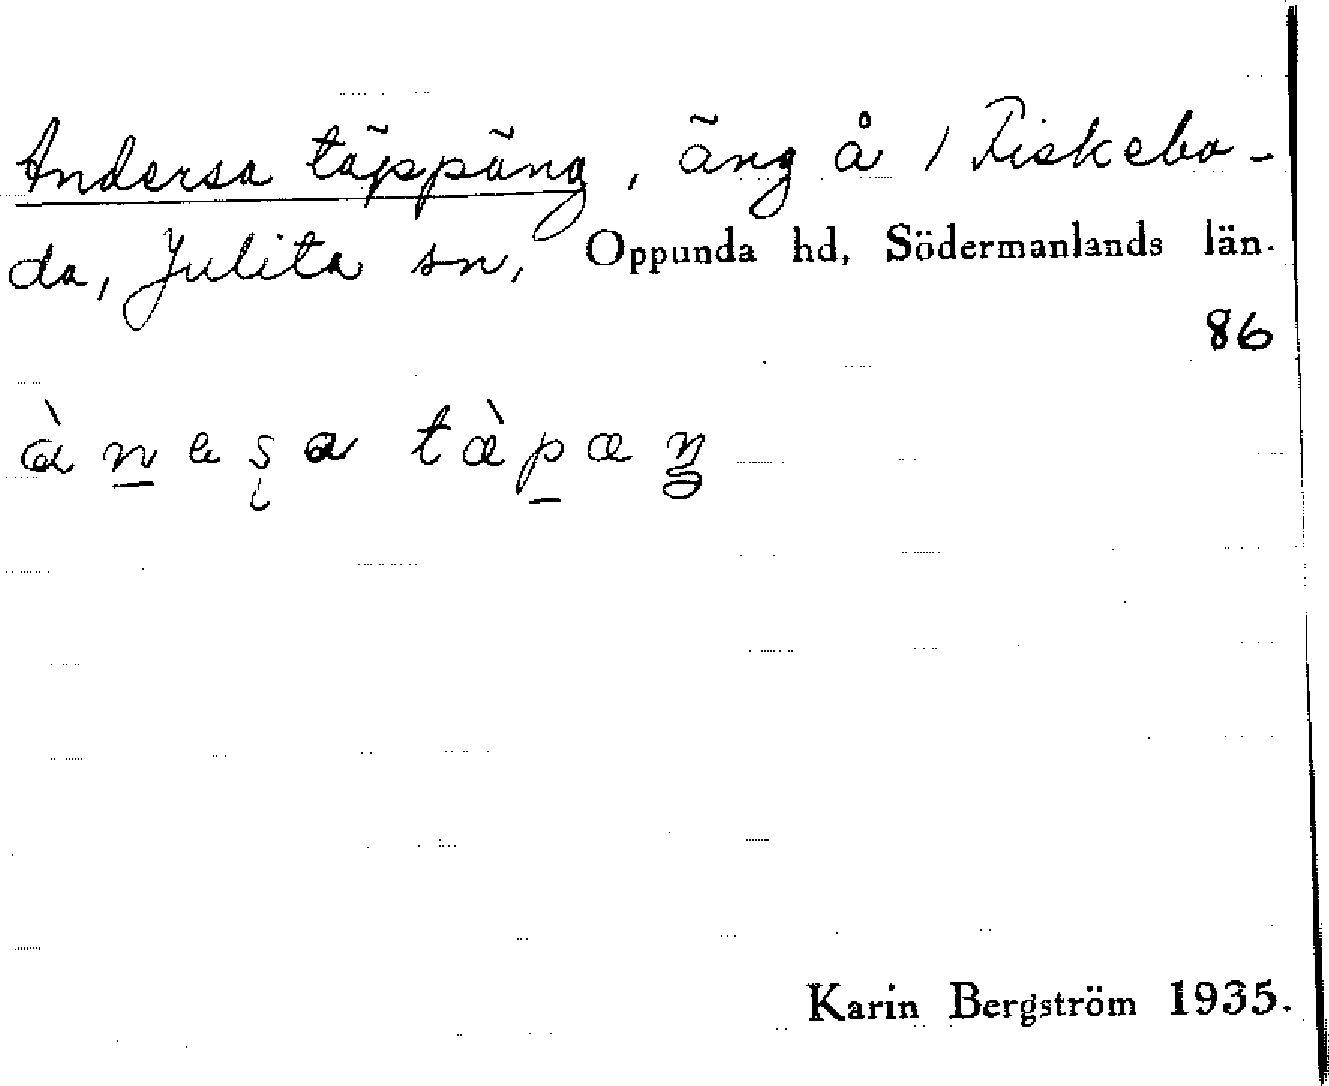 Andersa täppäng, äng å 1 Fiskebo-
da, Julita sn, Oppunda hd, Södermanlands län.
86
àn̲eşa tæ̀p̲æŋ
Karin Bergström 1935.